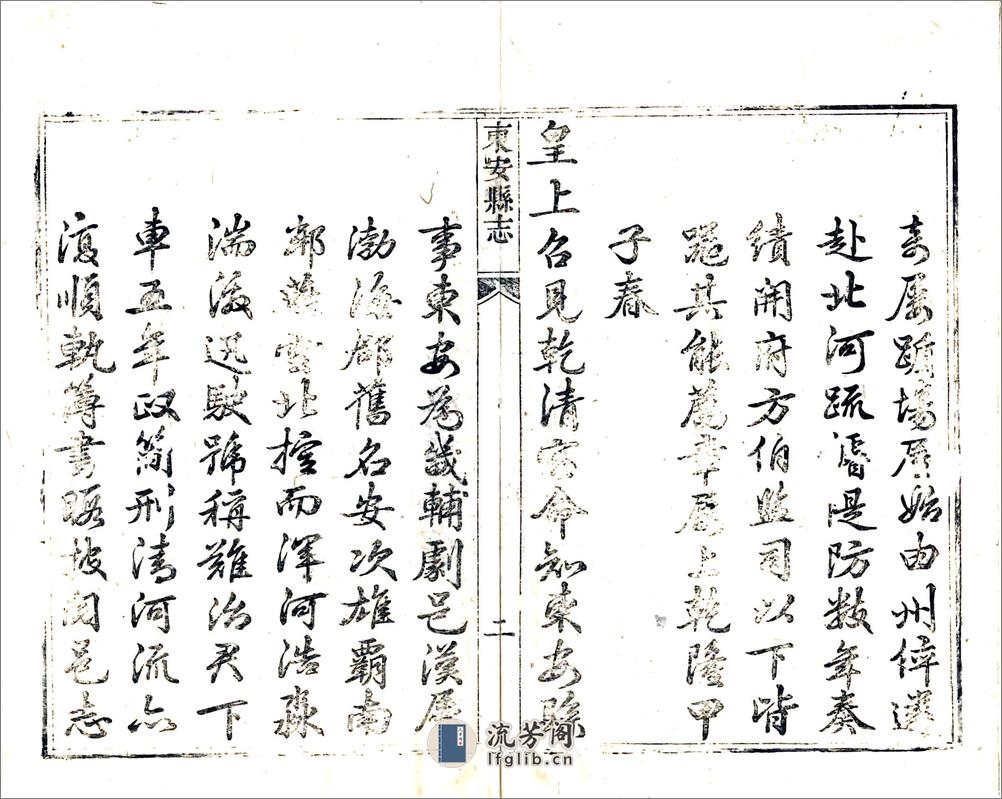 奇屢躓場屋始由州倅選
赴北河疏濬隄防数年奏
績開府方伯監司以下皆
器其能薦章屢上乾隆甲
子春
皇上召見乾清宮命知東安縣
東安縣志
二
事東安為畿輔劇邑漢屬
渤海郡舊名安次雄霸南
鄰燕雲北控而渾河浩淼
湍激迅駛號稱難治君下
車五年政簡刑清河流亦
復順軌簿書暇披閱邑志
流芳阁
lfglib.cn